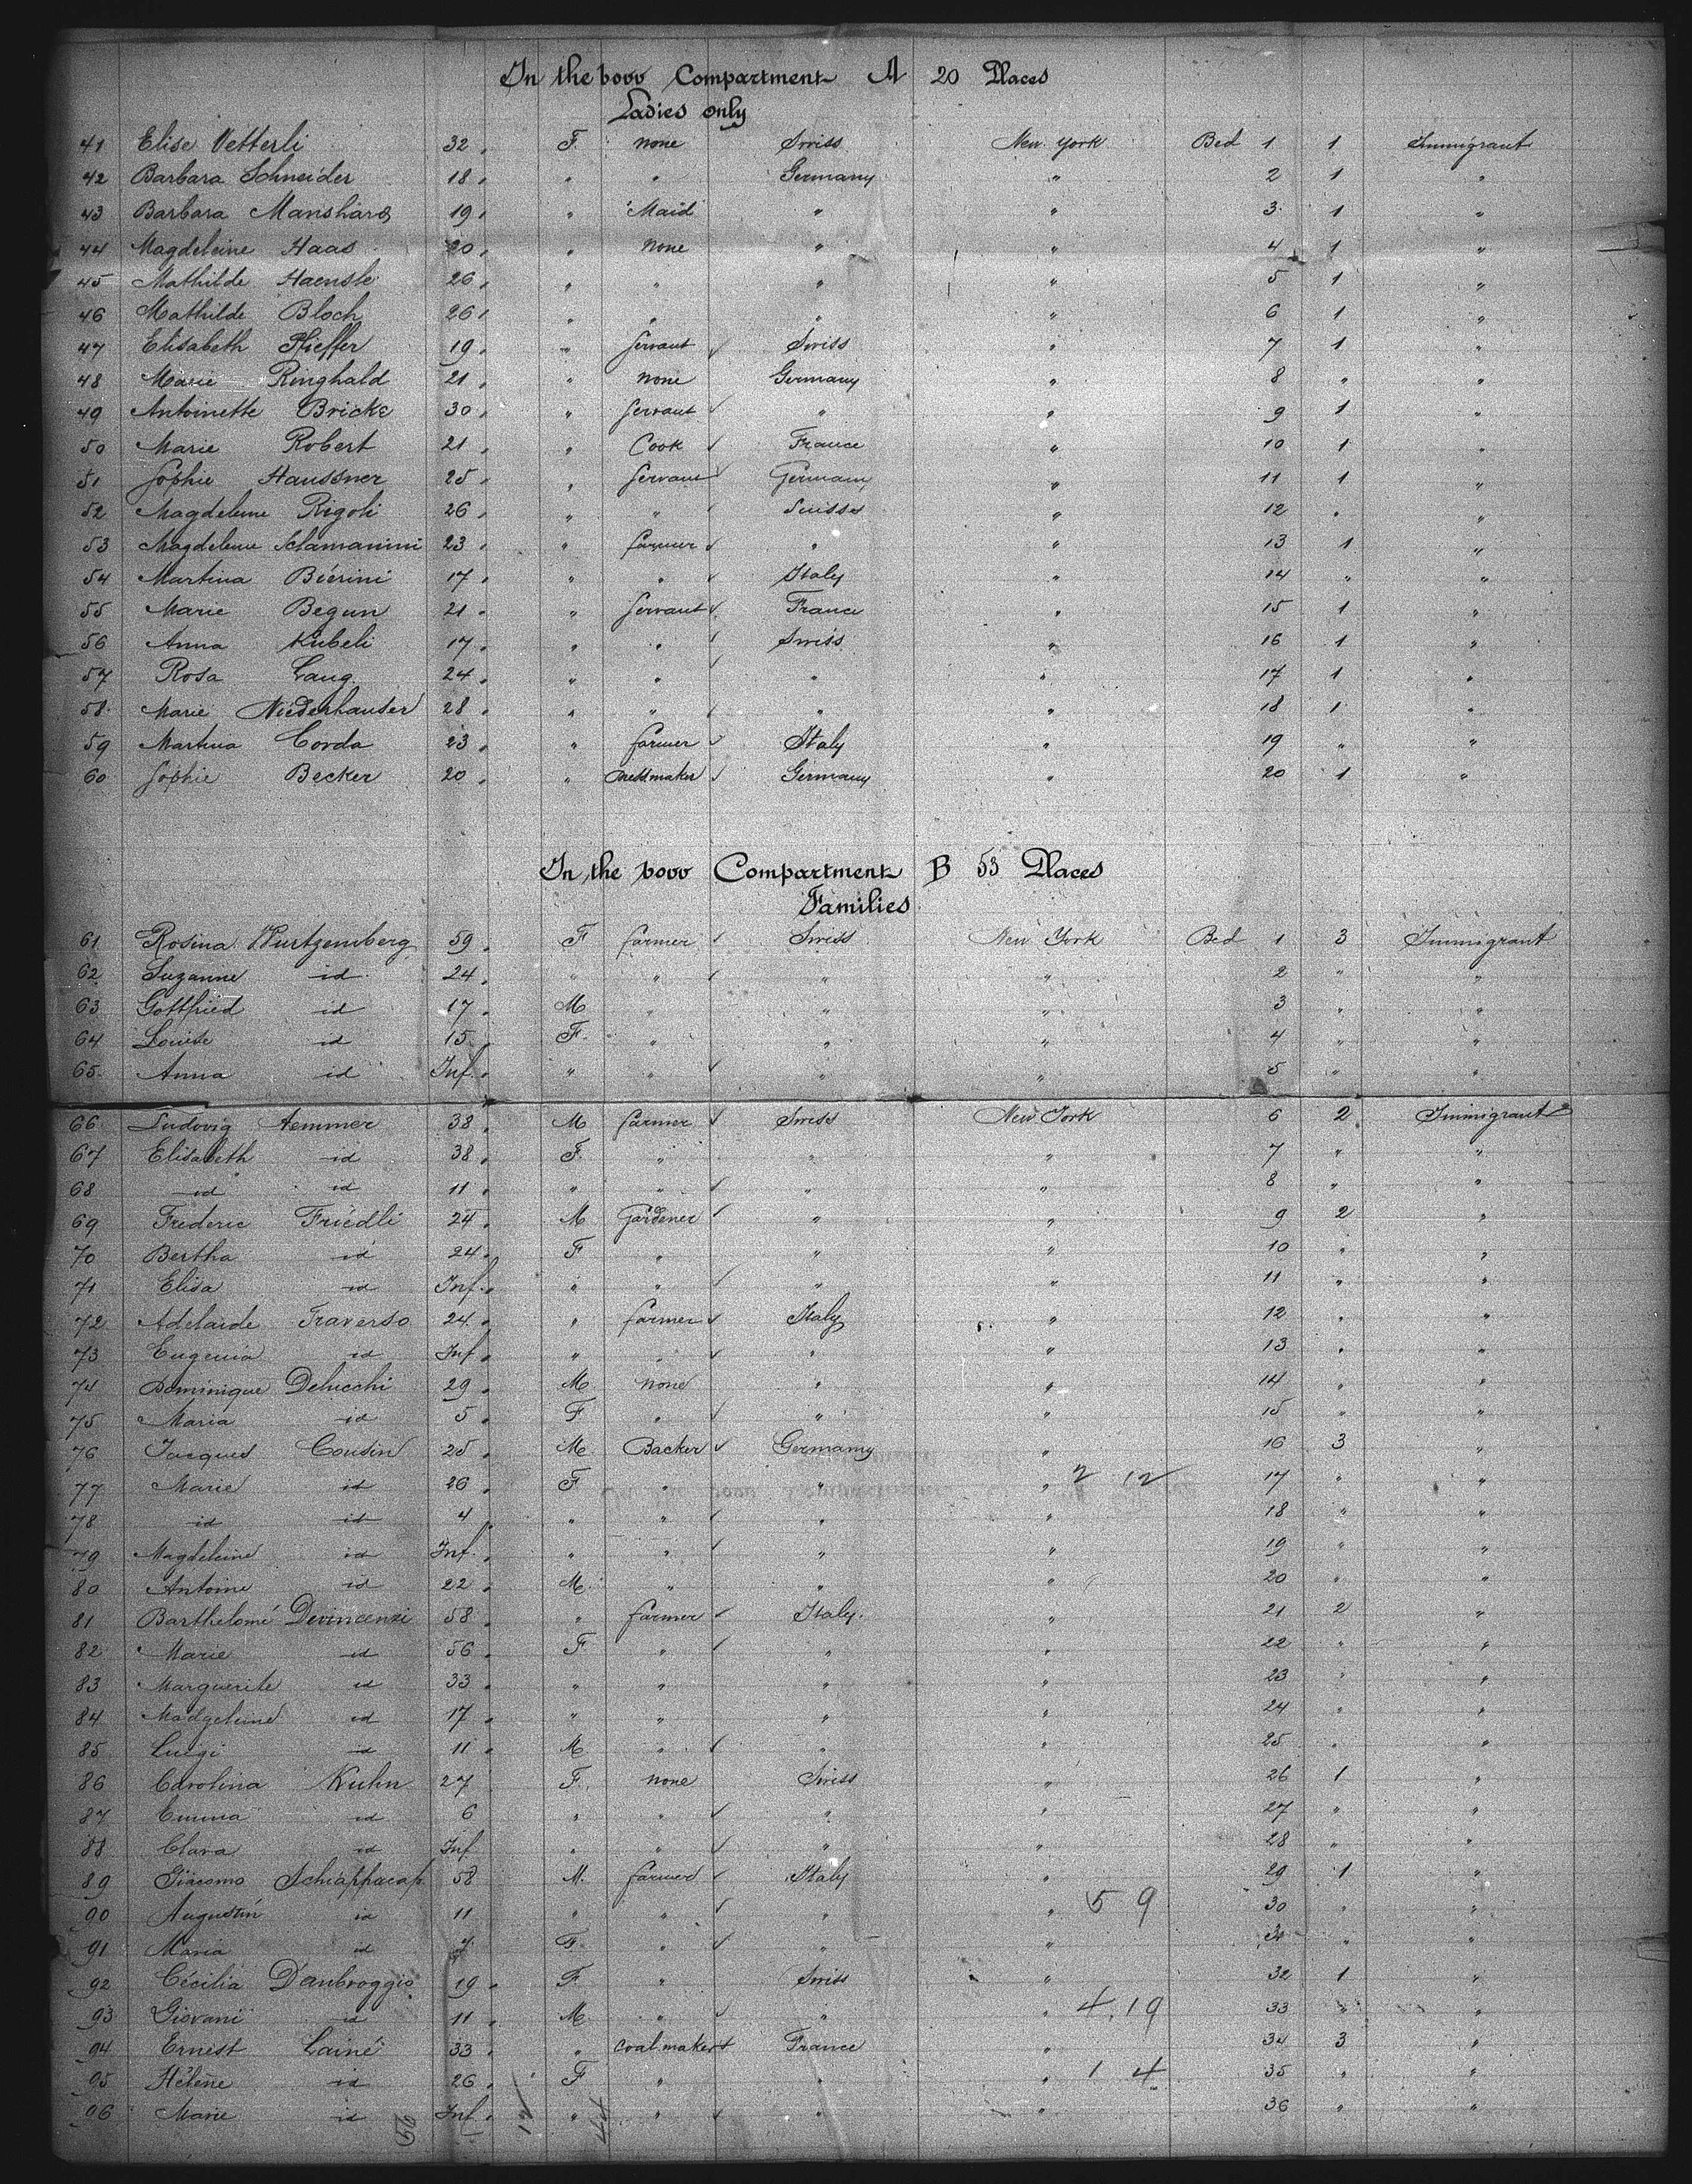 In the bovv Compartment A 20 Places
Ladies only
41 Elise Vetterli 32 F none Swiss New York Bed 1 1 Immigrant
42 Barbara Schneider 18 " " Germany " 2 1 "
43 Barbara Manshard 19 " Maid " " 3 1 "
44 Magdeleine Haas 20 " none " " 4 1 "
45 Mathilde Haensle 26 " " " " 5 1 "
46 Mathilde Bloch 26 " " " " 6 1 "
47 Elisabeth Pfieffer 19 " Servant Swiss " 7 1 "
48 Marie Ringhald 21 " none Germany " 8 " "
49 Antoinette Bricke 30 " Servant " " 9 1 "
50 Marie Robert 21 " Cook France " 10 1 "
51 Sophie Haussner 25 " Servant Germany " 11 1 "
52 Magdeleine Rigoli 26 " " Suisse " 12 " "
53 Magdeleine Sclamanini 23 " farmer " " 13 1 "
54 Martina Biérini 17 " " Italy " 14 " "
55 Marie Begun 21 " Servant France " 15 1 "
56 Anna Kübeli 17 " " Swiss " 16 1 "
57 Rosa Lang 24 " " " " 17 1 "
58 Marie Niederhauser 28 " " " " 18 1 "
59 Martina Corda 23 " farmer Italy " 19 " "
60 Sophie Becker 20 " Dressmaker Germany " 20 1 "
In the bovv Compartment B 53 Places
Families
61 Rosina Wurtzemberg 59 F farmer Swiss New York Bed 1 3 Immigrant
62 Suzanne id 24 " " " " 2 " "
63 Gottfried id 17 M " " " 3 " "
64 Louise id 15 F " " " 4 " "
65 Anna id Inf. " " " " 5 " "
66 Ludovig Aemmer 38 M farmer Swiss New York 6 2 Immigrant
67 Elisabeth id 38 F " " " 7 " "
68 id id 11 " " " " 8 " "
69 Frederic Friedli 24 M Gardener " " 9 2 "
70 Bertha id 24 F " " " 10 " "
71 Elisa id Inf. " " " " 11 " "
72 Adelaide Traverso 24 " farmer Italy " 12 " "
73 Eugenia id Inf " " " " 13 " "
74 Dominique Delucchi 29 M none " " 14 " "
75 Maria id 5 F " " " 15 " "
76 Jacques Cousin 25 M Backer Germany " 16 3 "
77 Marie id 26 F " " " 2 12 17 " "
78 id id 4 " " " " 18 " "
79 Magdeleine id Inf. " " " " 19 " "
80 Antoine id 22 M " " " 20 " "
81 Barthelomé Devincenzi 58 " farmer Italy " 21 2 "
82 Marie id 56 F " " " 22 " "
83 Marguerite id 33 " " " " 23 " "
84 Madgeleine id 17 " " " " 24 " "
85 Luigi id 11 M " " " 25 " "
86 Carolina Kuhn 27 F none Swiss " 26 1 "
87 Emma id 6 " " " " 27 " "
88 Clara id Inf " " " " 28 " "
89 Giacomo Schiappacap. 58 M. farmer Italy " 29 1 "
90 Augustin id 11 " " " " 5 9 30 " "
91 Maria id F. " " " 31 " "
92 Cécilia Danbroggio 19 F " Swiss " 32 1 "
93 Giovani id 11 M " " " 4,19 33 " "
94 Ernest Lainé 33 " coal maker France " 34 3 "
95 Hélène id 26 F " " " 1 4 35 " "
96 Marie id Inf. " " " " 36 " "